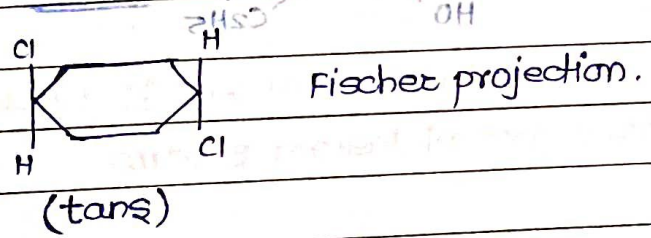 C2H5 HO
Cl H
Fischer projection.
H Cl
(tans)